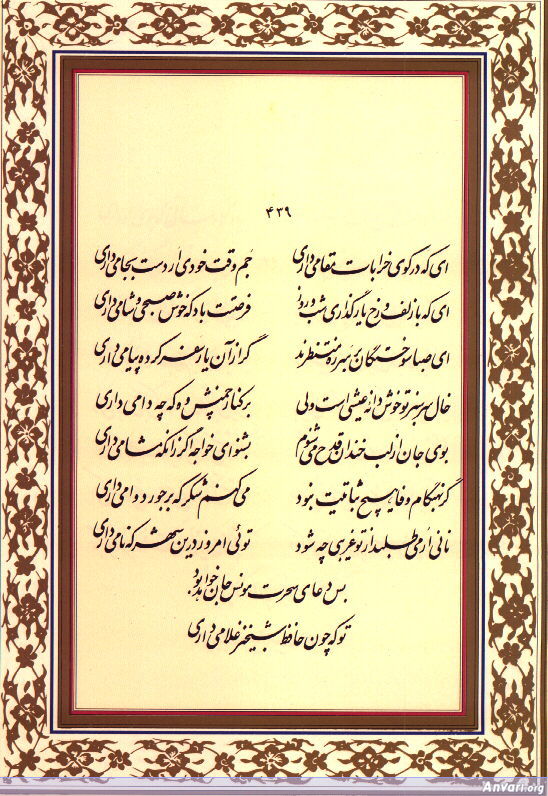 ۴۳۹
ای که در کوی خرابات مقامی داری جم وقت خودی ار دست بجامی داری
ای که با زلف و رخ یار گذاری شب و روز فرصتت باد که خوش صبحی و شامی داری
ای صبا سوختگان بر سر ره منتظرند گر از آن یار سفر کرده پیامی داری
خال سرسبز تو خوش دانه عیشی است ولی بر کنار چمنش وه که چه دامی داری
بوی جان از لب خندان قدح می شنوم بشنو ای خواجه اگر زانکه مشامی داری
گر بهنگام وفا هیچ ثباتیت نبود می کنم شکر که بر جور دوامی داری
نامی ار می طلبد از تو غریبی چه شود توئی امروز درین شهر که نامی داری
بس دعای سحرت مونس جان خواهد بود
تو که چون حافظ شبخیز غلامی داری
Anvari.org